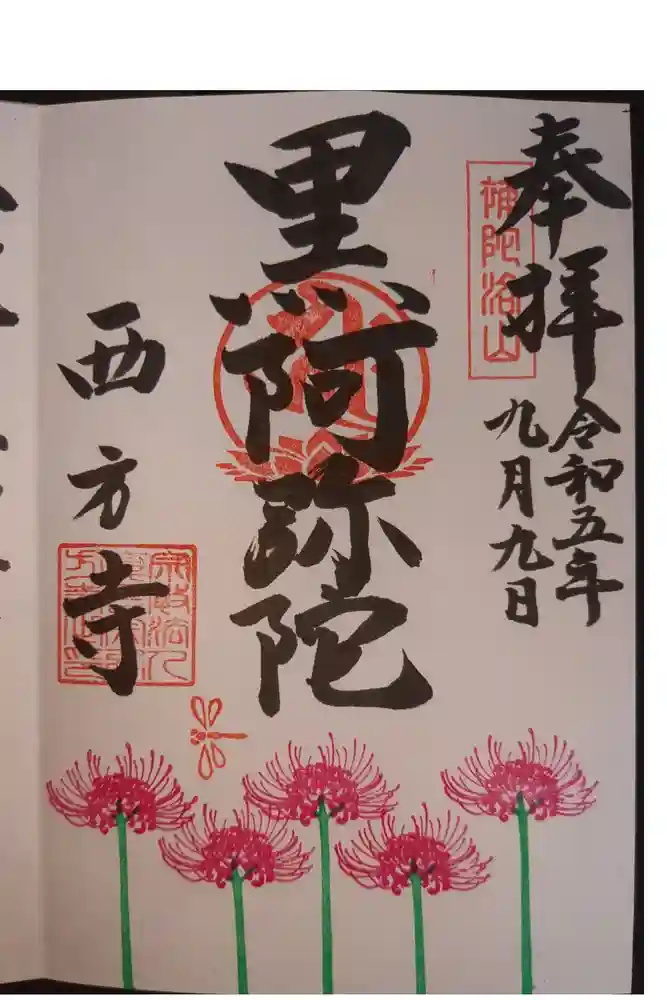 奉拝
令和五年
九月九日
補陀洛山
黒阿弥陀
西方寺